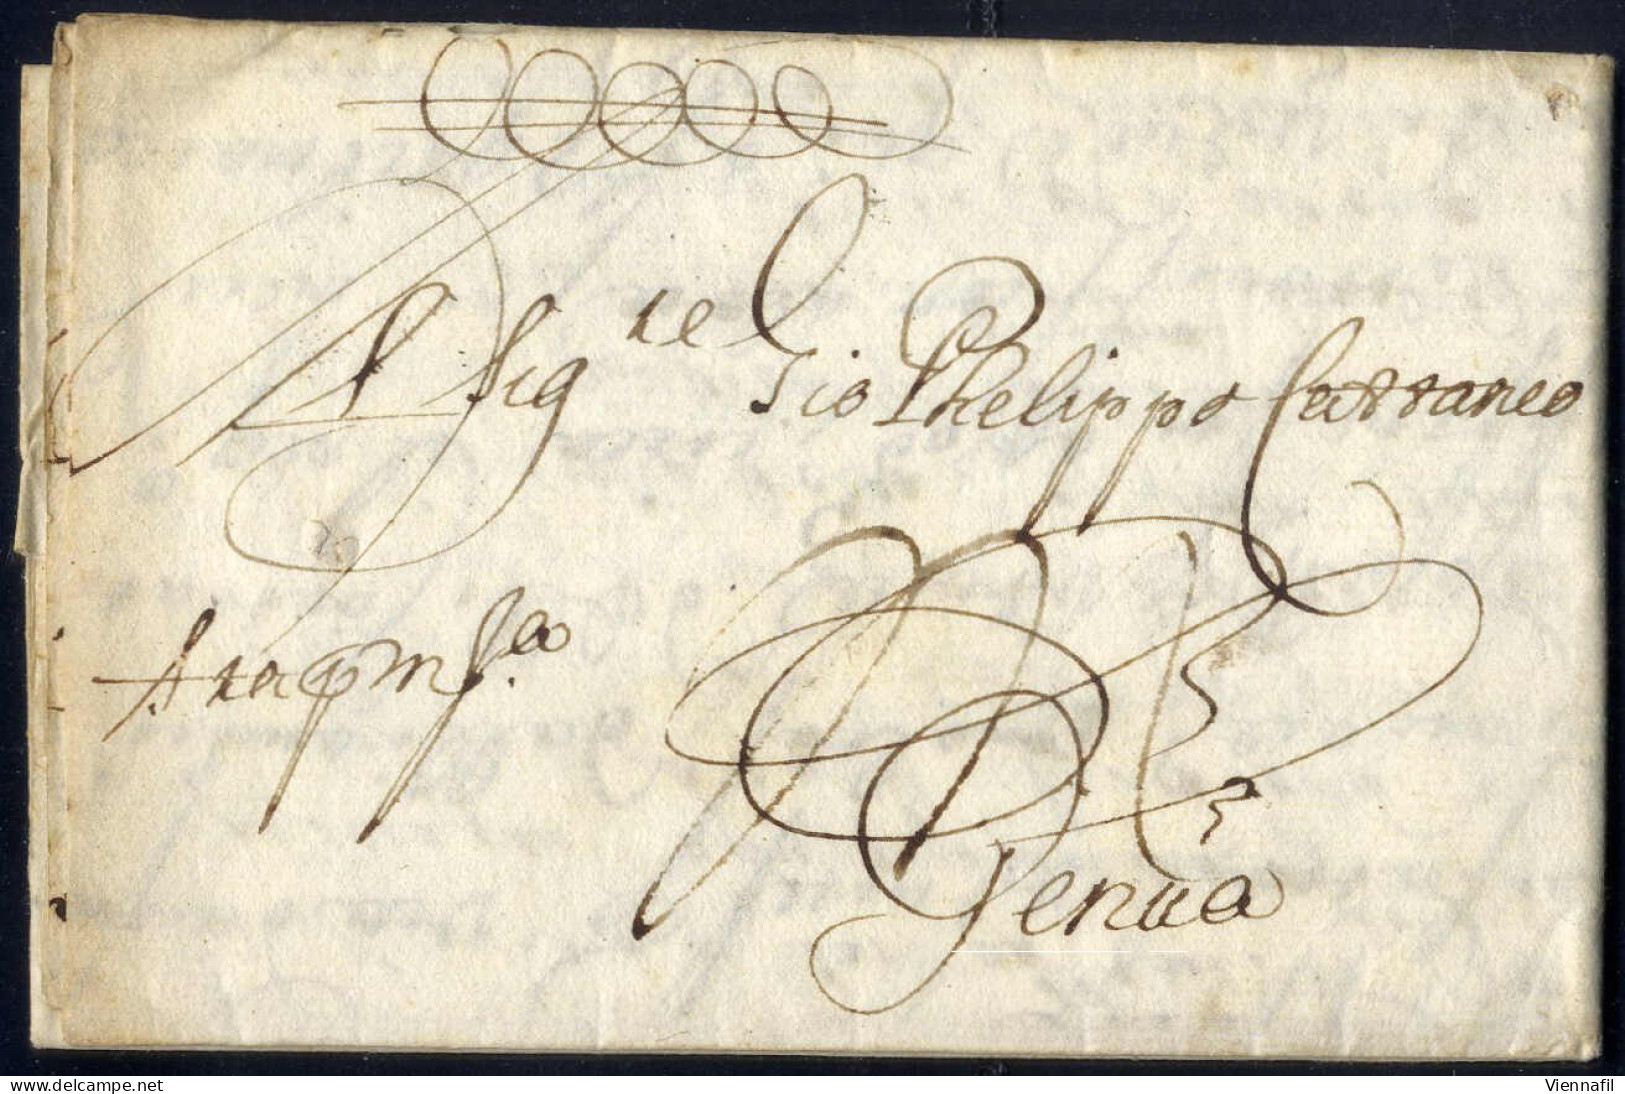 Al Sig.re Gio Phelippo Cattaneo
Genua
delcampe.net
Viennafil